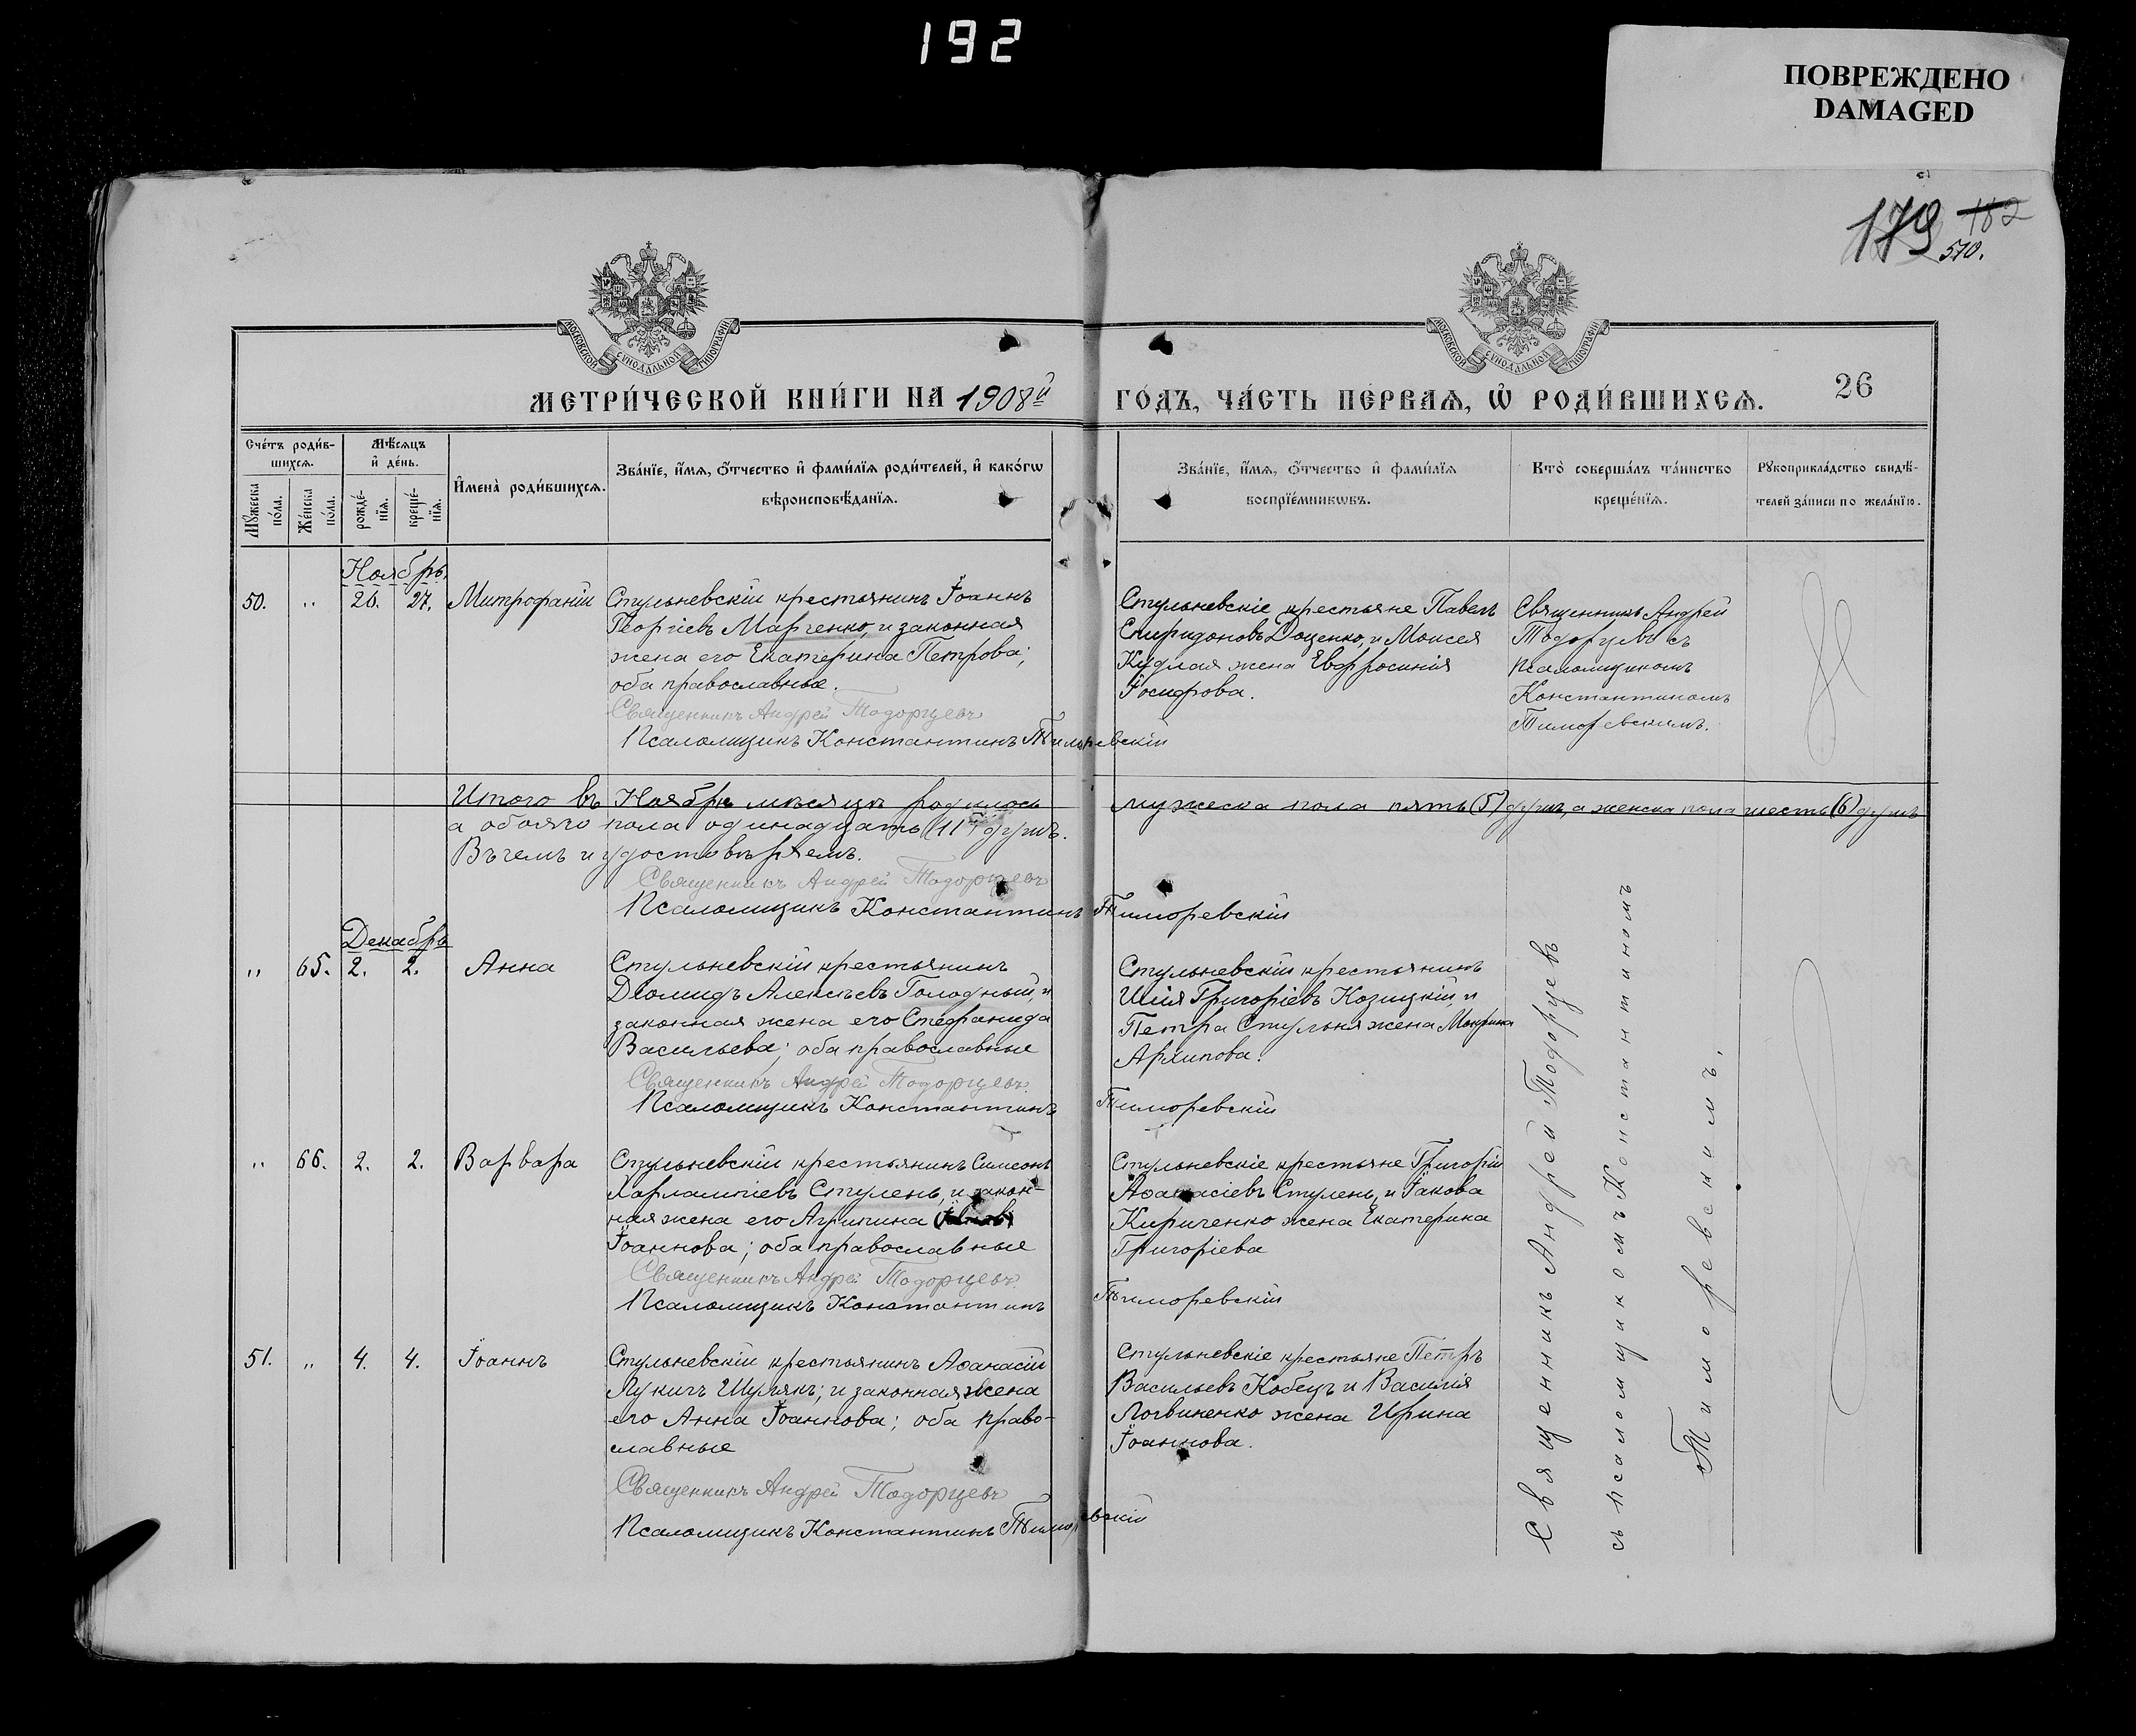 192
ПОВРЕЖДЕНО
DAMAGED
179 182
570.
МОСКОВСКОЙ СУНОДАЛЬНОЙ ТИПОГРАФІИ
МОСКОВСКОЙ СУНОДАЛЬНОЙ ТИПОГРАФІИ
МЕТРИ́ЧЕСКОЙ КНИ́ГИ НА 1908й ГО́ДЪ, ЧА́СТЬ ПЕ́РВАѦ, Ѡ҆ РОДИ́ВШИХСѦ. 26
Сче́тъ роди́в-
шихсѧ.
Мѣ́сѧцъ
и҆ де́нь.
Мꙋ́жеска по́ла.
Же́нска по́ла.
рожде́-
нїѧ.
креще́-
нїѧ.
И҆мена̀ роди́вшихсѧ.
Зва́нїе, и҆́мѧ, ѻ҆́тчество и҆ фами́лїѧ роди́телей, и҆ како́гѡ
вѣроисповѣ́данїѧ.
Зва́нїе, и҆́мѧ, ѻ҆́тчество и҆ фами́лїѧ
воспрїе́мникѡвъ.
Кто̀ соверша́лъ та́инство
креще́нїѧ.
Рꙋкоприкла́дство свидѣ́-
телей за́писи по жела́нїю.
Ноябрь
50. " 26. 27. Митрофаній
Стульневскій крестьянинъ Іоаннъ
Георгіевъ Марченко, и законная
жена его Екатерина Петрова;
оба православные.
Священникъ Андрей Тодорцевъ
Псаломщикъ Константинъ Тиморевскій
Стульневскіе крестьяне Павелъ
Спиридоновъ Доценко, и Моисея
Кудлая жена Евфросинія
Іосифова.
Священникъ Андрей
Тодорцевъ съ
псаломщикомъ
Константиномъ
Тиморевскимъ.
Итого въ Ноябрѣ мѣсяцѣ родилось мужеска пола пять (5) душъ, а женска пола шесть (6) душъ
а обоего пола одинадцать (11) душъ.
Въ чемъ и удостовѣряемъ.
Священникъ Андрей Тодорцевъ
Псаломщикъ Константинъ Тиморевскій
Декабрь
" 65. 2. 2. Анна
Стульневскій крестьянинъ
Діомидъ Алексѣевъ Голодный, и
законная жена его Стефанида
Васильева; оба православные
Священникъ Андрей Тодорцевъ
Псаломщикъ Константинъ Тиморевскій
Стульневскій крестьянинъ
Илія Григоріевъ Козицкій, и
Петра Стульня жена Макрина
Архипова.
" 66. 2. 2. Варвара
Стульневскій крестьянинъ Симеонъ
Харлампіевъ Стулень, и закон-
ная жена его Агрипина
Іоаннова; оба православные
Священникъ Андрей Тодорцевъ
Псаломщикъ Константинъ Тиморевскій
Стульневскіе крестьяне Григорій
Аѳанасіевъ Стулень, и Іакова
Кириченко жена Екатерина
Григоріева
51. " 4. 4. Іоаннъ
Стульневскій крестьянинъ Аѳанасій
Лукичъ Шульякъ; и законная жена
его Анна Іоаннова; оба право-
славные
Священникъ Андрей Тодорцевъ
Псаломщикъ Константинъ Тиморевскій
Стульневскіе крестьяне Петръ
Васильевъ Кобецъ и Василія
Логвиненко жена Ирина
Іоаннова.
Священникъ Андрей Тодорцевъ
съ псаломщикомъ Константиномъ
Тиморевскимъ.